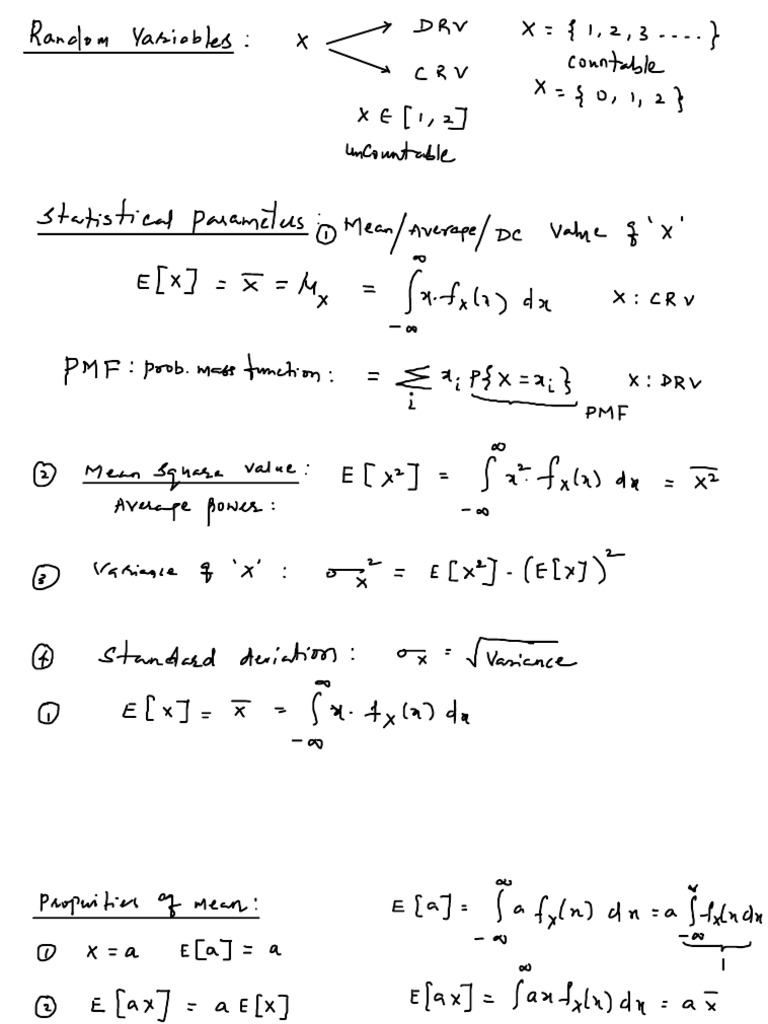 Random Variables : X → DRV X = { 1, 2, 3 ....}
countable
→ CRV X = { 0, 1, 2 }
X ∈ [1, 2]
uncountable
Statistical parameters : ① Mean/Average/DC value of 'X'
E[X] = X̄ = μ_X = ∫_{-∞}^{∞} x. f_X(x) dx X : CRV
PMF : prob. mass function : = Σ_i x_i P{X = x_i} X : DRV
PMF
② Mean square value : E[X²] = ∫_{-∞}^{∞} x². f_X(x) dx = \overline{X²}
Average power :
③ Variance of 'X' : σ_X² = E[X²] - (E[X])²
④ Standard deviation : σ_X = √Variance
① E[X] = X̄ = ∫_{-∞}^{∞} x. f_X(x) dx
Properties of mean : E[a] = ∫_{-∞}^{∞} a f_X(x) dx = a ∫_{-∞}^{∞} f_X(x) dx
① X = a E[a] = a 1
② E[aX] = a E[X] E[aX] = ∫^{∞} ax f_X(x) dx = a X̄